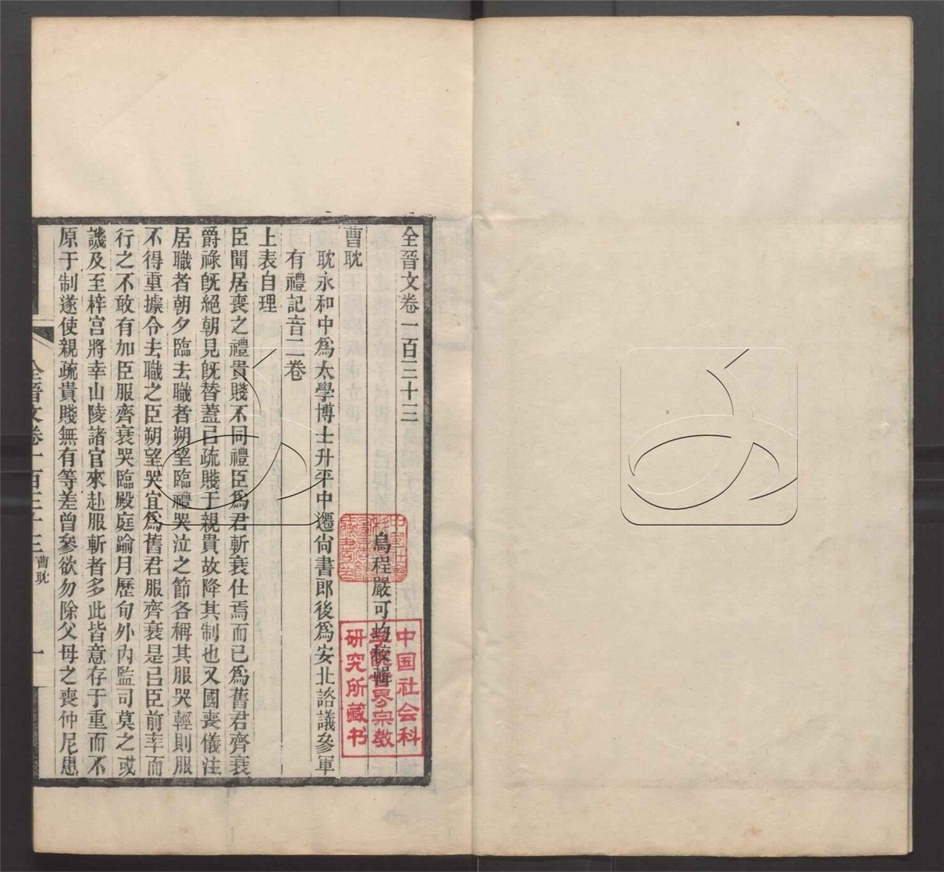 全晉文卷一百三十三
烏程嚴可均校輯
曹耽
耽永和中爲太學博士升平中遷尙書郎後爲安北諮議參軍
有禮記音二卷
上表自理
臣聞居喪之禮貴賤不同禮臣爲君斬衰仕焉而已爲舊君齊衰
爵祿旣絕朝見旣替蓋㠯疏賤于親貴故降其制也又國喪儀注
居職者朝夕臨去職者朔望臨禮哭泣之節各稱其服哭輕則服
不得重據令去職之臣朔望哭宜爲舊君服齊衰是㠯臣前率而
行之不敢有加臣服齊衰哭臨殿庭踰月歷旬外內監司莫之或
譏及至梓宮將幸山陵諸官來赴服斬者多此皆意存于重而不
原于制遂使親疏貴賤無有等差曾參欲勿除父母之喪仲尼患
全晉文卷一百三十三 曹耽 一
中国社会科
学院世界宗教
研究所藏书